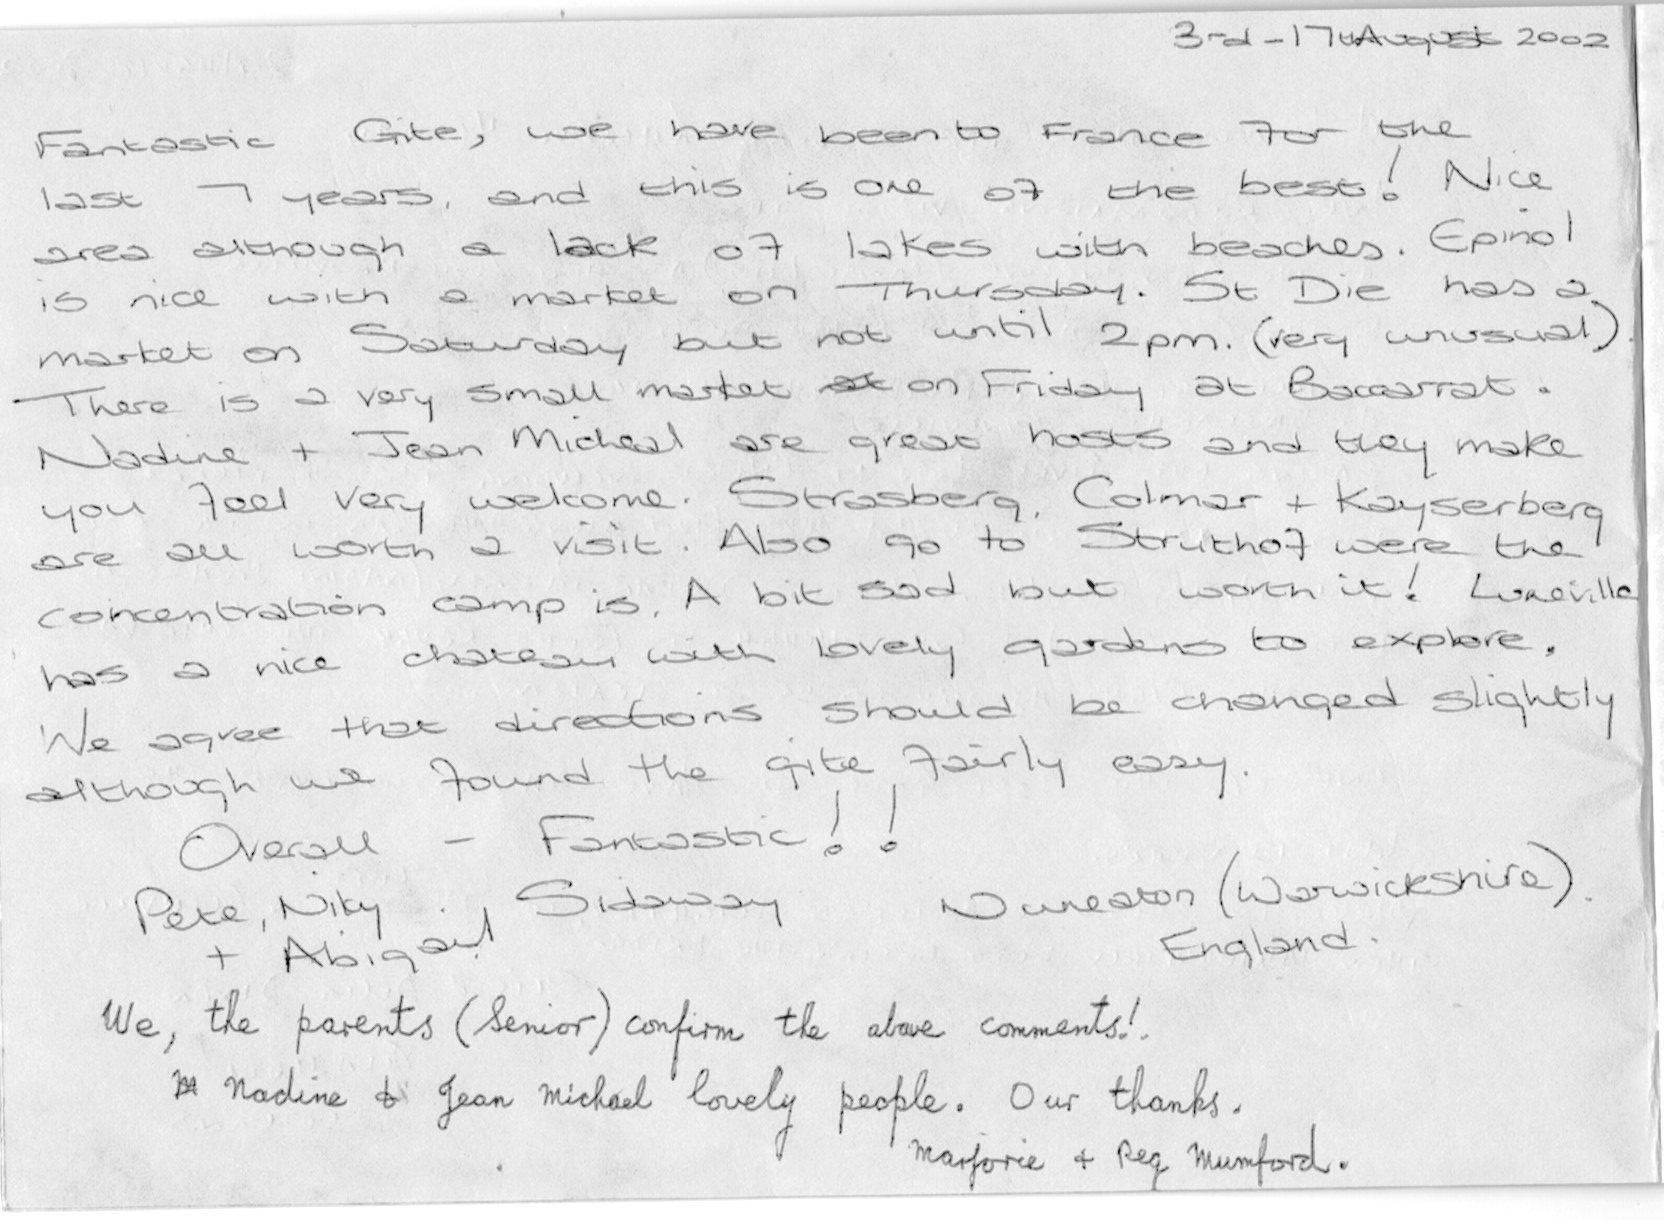 3rd - 17th August 2002
Fantastic Gite, we have been to France for the
last 7 years, and this is one of the best! Nice
area although a lack of lakes with beaches. Epinol
is nice with a market on Thursday. St Die has a
market on Saturday but not until 2pm. (very unusual).
There is a very small market at on Friday at Baccarrat.
Nadine + Jean Micheal are great hosts and they make
you feel very welcome. Strasberg, Colmar + Kayserberg
are all worth a visit. Also go to Struthof were the
concentration camp is. A bit sad but worth it! Luneville
has a nice chateau with lovely gardens to explore.
We agree that directions should be changed slightly
although we found the gite fairly easy.
Overall - Fantastic!!
Pete, Niky Sidaway Nuneaton (Warwickshire).
+ Abigail England.
We, the parents (Senior) confirm the above comments!.
Nadine & Jean Michael lovely people. Our thanks.
Marjorie + Reg Mumford.